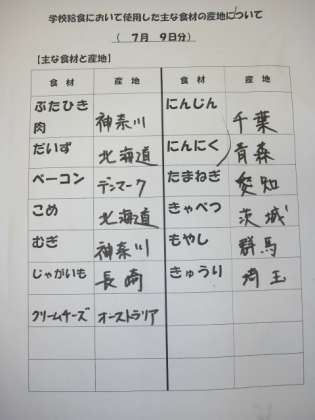 学校給食において使用した主な食材の産地について
( 7月 9日分)
【主な食材と産地】
食材 産地 食材 産地
ぶたひき肉 神奈川 にんじん 千葉
だいず 北海道 にんにく 青森
ベーコン デンマーク たまねぎ 愛知
こめ 北海道 きゃべつ 茨城
むぎ 神奈川 もやし 群馬
じゃがいも 長崎 きゅうり 埼玉
クリームチーズ オーストラリア